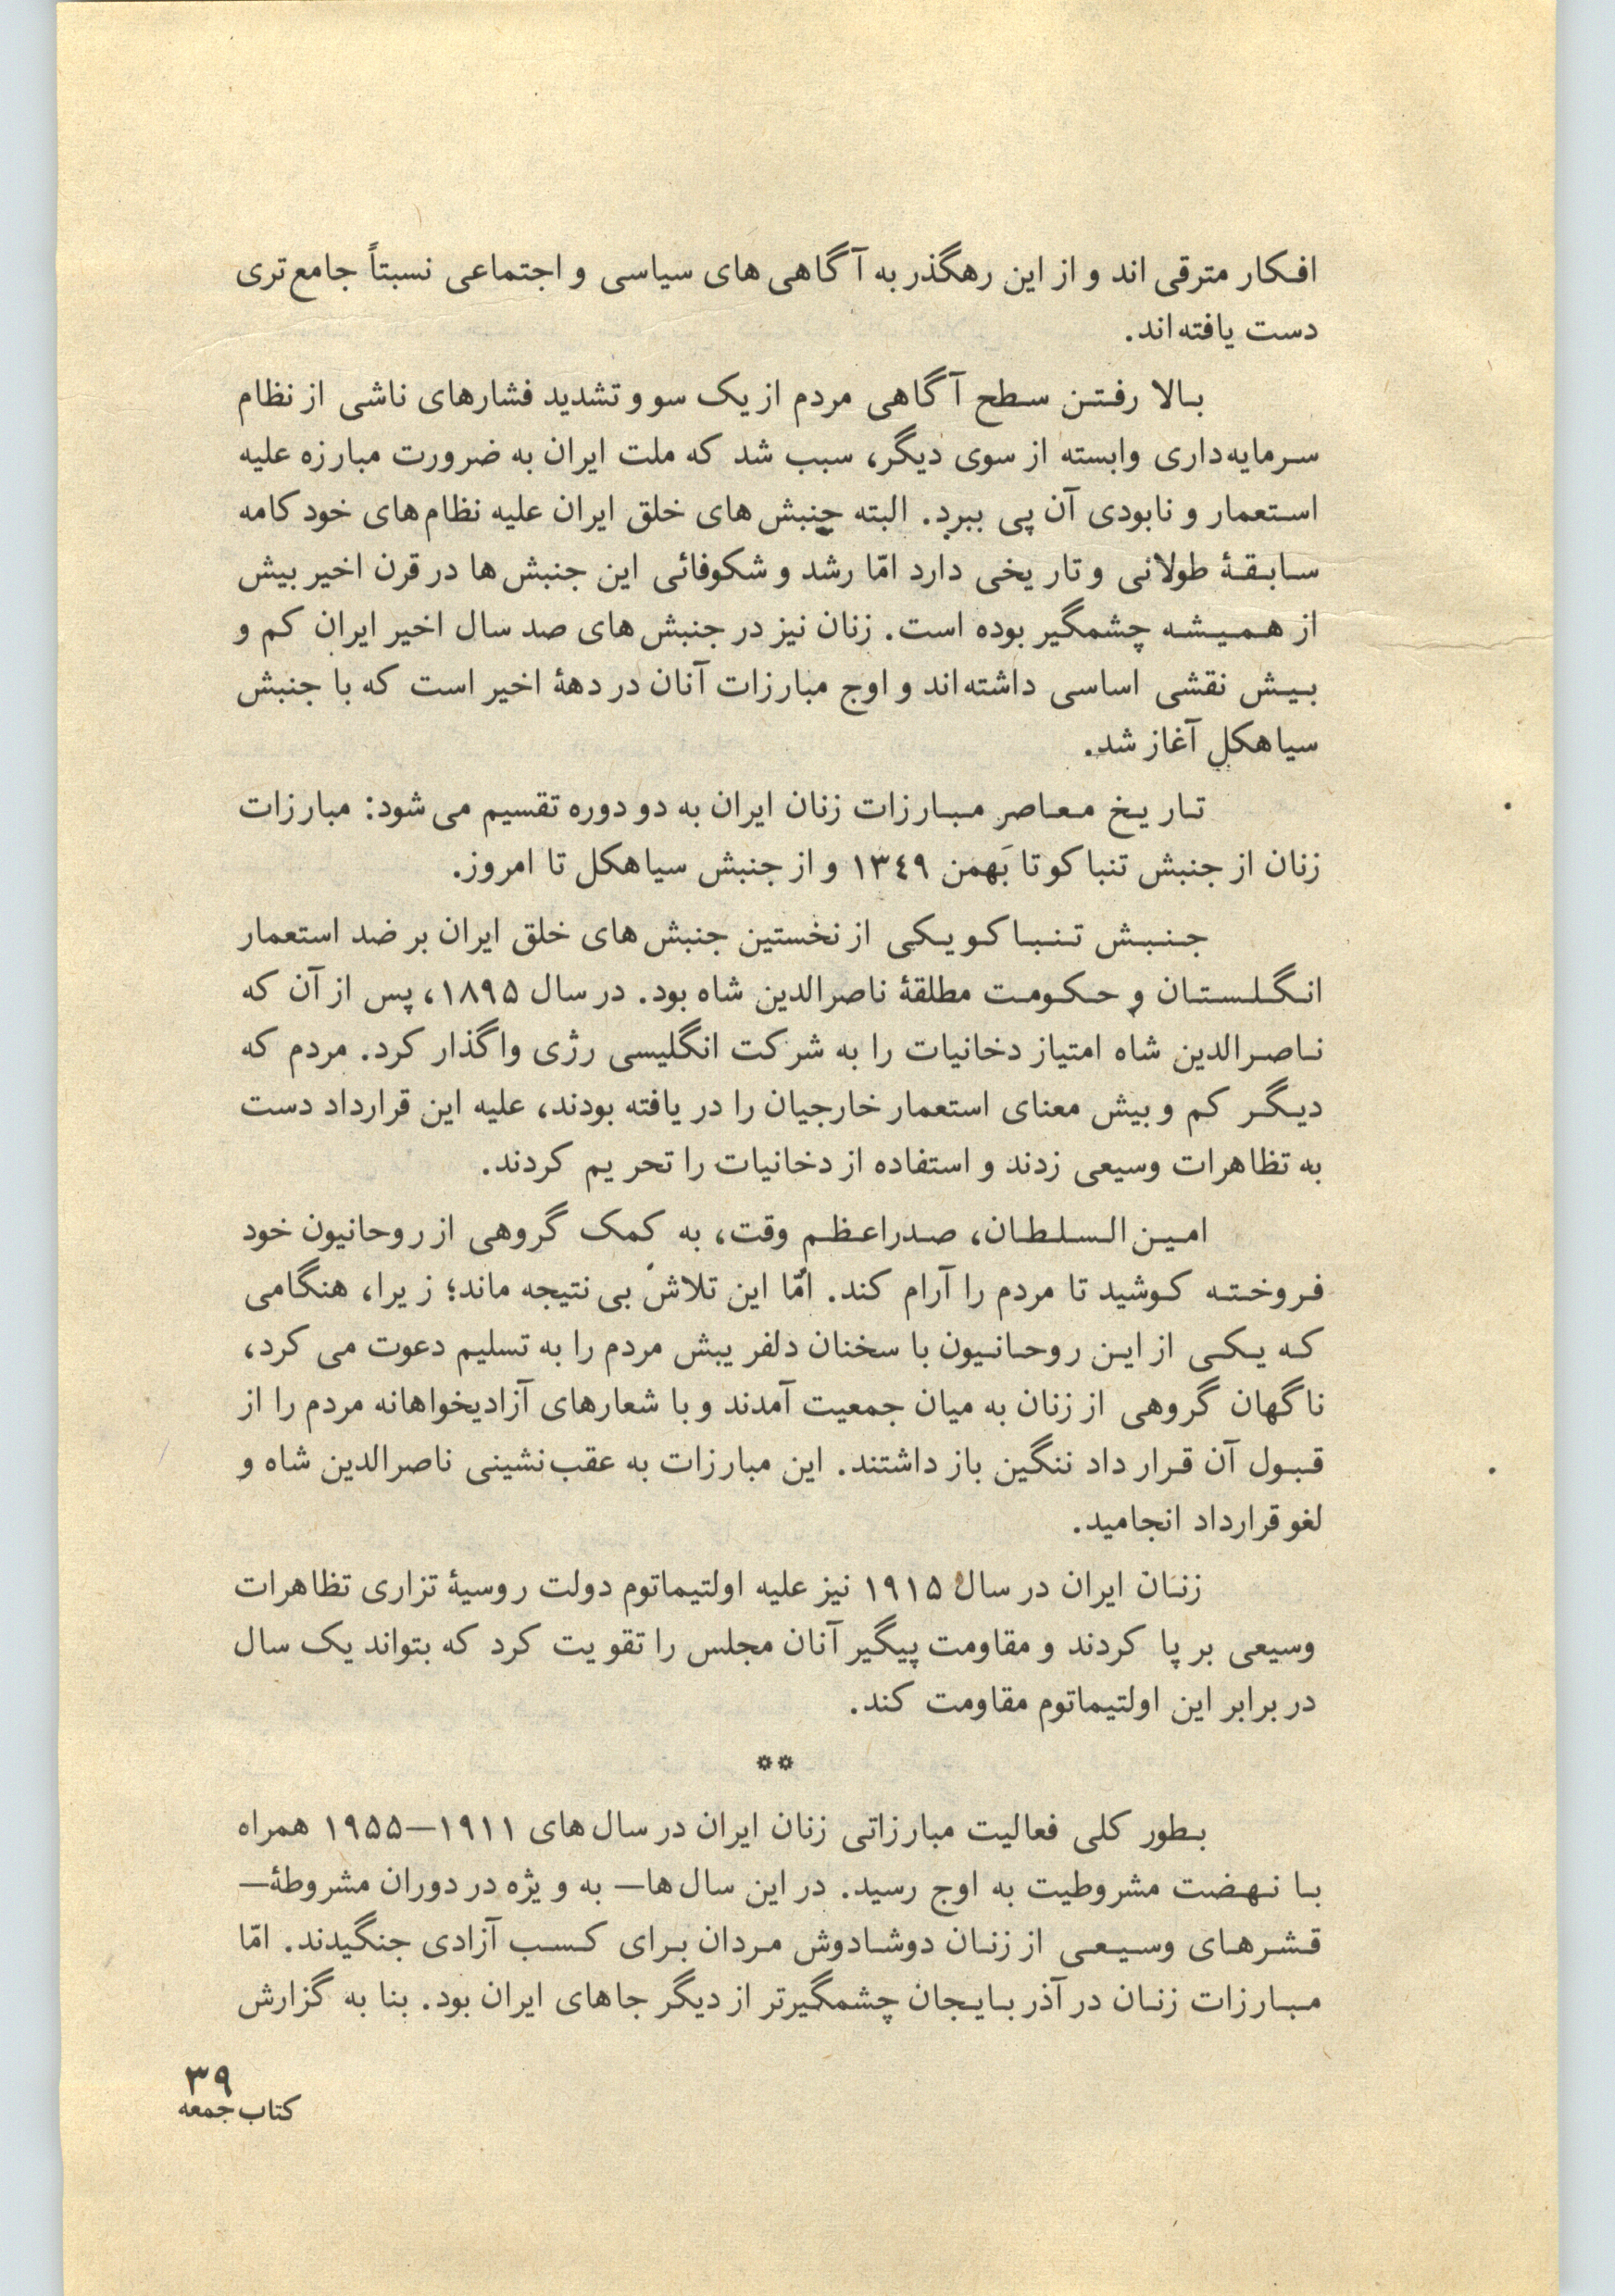 افکار مترقی اند و از این رهگذر به آگاهی های سیاسی و اجتماعی نسبتاً جامع‌تری
دست یافته اند.
بالا رفتن سطح آگاهی مردم از یک سو و تشدید فشارهای ناشی از نظام
سرمایه‌داری وابسته از سوی دیگر، سبب شد که ملت ایران به ضرورت مبارزه علیه
استعمار و نابودی آن پی ببرد. البته جنبش های خلق ایران علیه نظام های خود کامه
سابقهٔ طولانی و تاریخی دارد امّا رشد و شکوفائی این جنبش ها در قرن اخیر بیش
از همیشه چشمگیر بوده است. زنان نیز در جنبش های صد سال اخیر ایران کم و
بیش نقشی اساسی داشته اند و اوج مبارزات آنان در دههٔ اخیر است که با جنبش
سیاهکل آغاز شد.
تاریخ معاصر مبارزات زنان ایران به دو دوره تقسیم می شود: مبارزات
زنان از جنبش تنباکو تا بَهمن ۱۳٤۹ و از جنبش سیاهکل تا امروز.
جنبش تنباکو یکی از نخستین جنبش های خلق ایران بر ضد استعمار
انگلستان و حکومت مطلقهٔ ناصرالدین شاه بود. در سال ۱۸۹۵، پس از آن که
ناصرالدین شاه امتیاز دخانیات را به شرکت انگلیسی رژی واگذار کرد. مردم که
دیگر کم و بیش معنای استعمار خارجیان را دریافته بودند، علیه این قرارداد دست
به تظاهرات وسیعی زدند و استفاده از دخانیات را تحریم کردند.
امین السلطان، صدراعظم وقت، به کمک گروهی از روحانیون خود
فروخته کوشید تا مردم را آرام کند. امّا این تلاش بی نتیجه ماند؛ زیرا، هنگامی
که یکی از این روحانیون با سخنان دلفریبش مردم را به تسلیم دعوت می کرد،
ناگهان گروهی از زنان به میان جمعیت آمدند و با شعارهای آزادیخواهانه مردم را از
قبول آن قرار داد ننگین باز داشتند. این مبارزات به عقب نشینی ناصرالدین شاه و
لغو قرارداد انجامید.
زنان ایران در سال ۱۹۱۵ نیز علیه اولتیماتوم دولت روسیهٔ تزاری تظاهرات
وسیعی بر پا کردند و مقاومت پیگیر آنان مجلس را تقویت کرد که بتواند یک سال
در برابر این اولتیماتوم مقاومت کند.
**
بطور کلی فعالیت مبارزاتی زنان ایران در سال های ۱۹۱۱–۱۹۵۵ همراه
با نهضت مشروطیت به اوج رسید. در این سال ها– به ویژه در دوران مشروطهٔ–
قشرهای وسیعی از زنان دوشادوش مردان برای کسب آزادی جنگیدند. امّا
مبارزات زنان در آذربایجان چشمگیرتر از دیگر جاهای ایران بود. بنا به گزارش
۳۹
کتاب جمعه